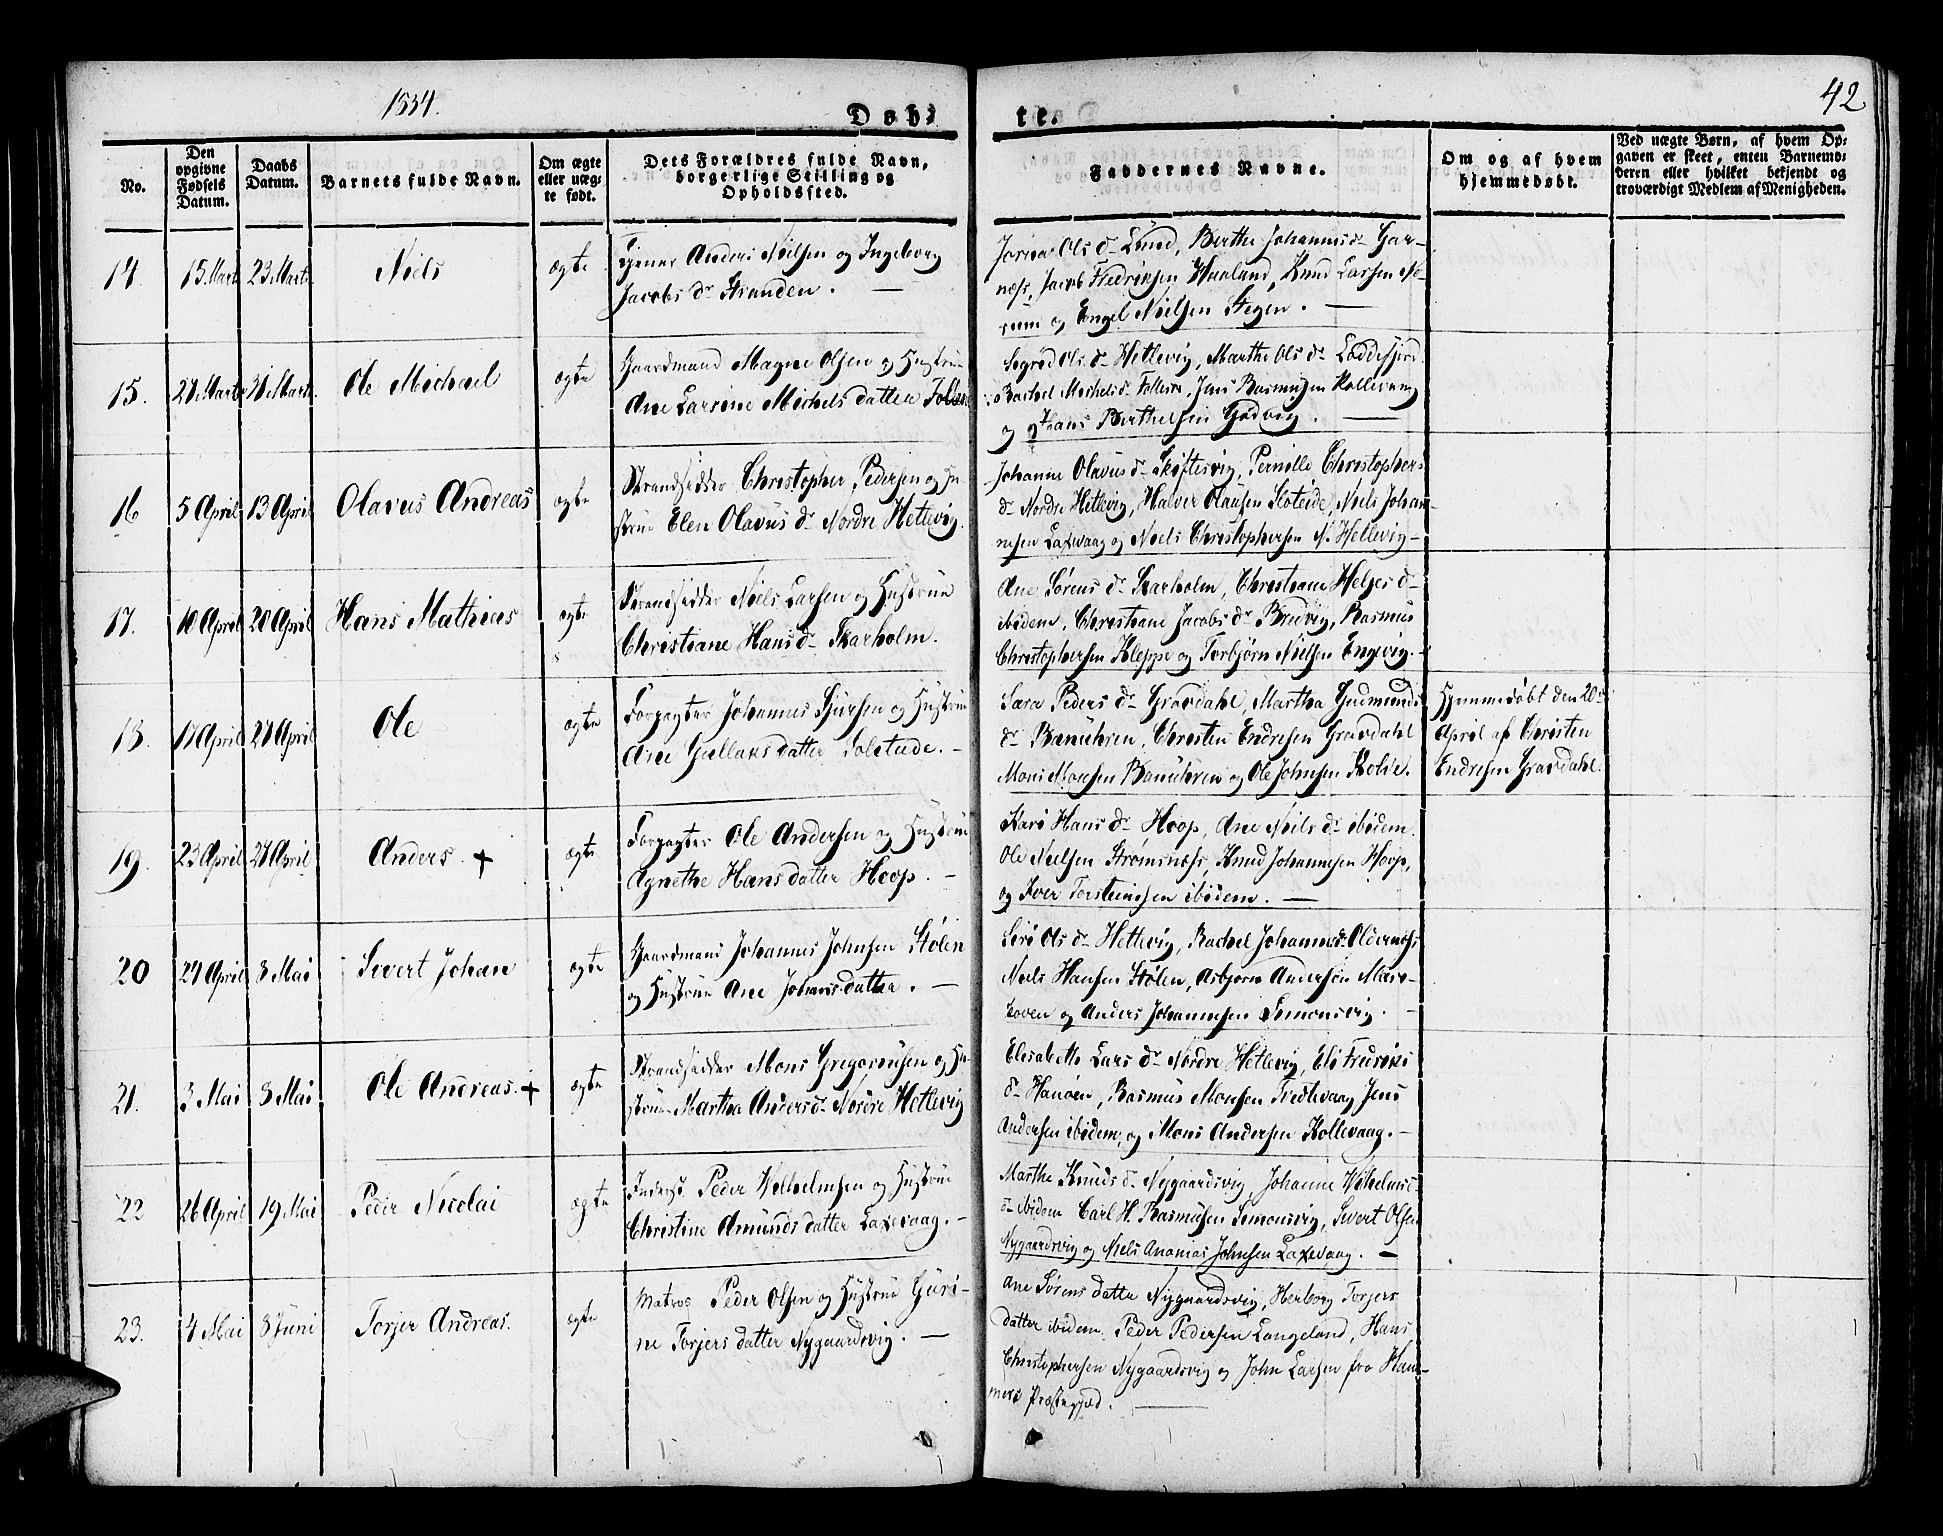 1834.
42
Døb-
te.
No.
Den opgivne Fødsels Datum.
Daabs Datum.
Barnets fulde Navn.
Om ægte eller uægte født.
Dets Forældres fulde Navn, borgerlige Stilling og Opholdssted.
Faddernes Navne.
Om og af hvem hjemmedøbt.
Ved uægte Børn, af hvem Opgaven er skeet, enten Barnemoderen eller hvilket bekjendt og troværdigt Medlem af Menigheden.
14. 15 Marts 23 Marts Niels ægte
Tjener Anders Nielsen og Ingeborg
Jacobs dr Stranden. —
Ols d. Lund, Berthe Johannes d. Gar-
næss, Jacob Fredriksen Haaland, Knud Larsen
og Engel Nielsen Stegen. —
15. 21 Marts 31 Marts. Ole Michael ægte
Gaardmand Magne Olsen og Hustrue
Ane Larsine Michels datter
Ols d. Hetlevig, Marthe Ols d. Loddefjord
Rachel Michels d. Jens Rasmusen Kollevaag
og Hans Berthelsen Godvig. —
16 5 April 13 April Olavus Andreas ægte
Strandsidder Christopher Pedersen og Hu-
strue Elen Olavus dr Nordre Hetlevig.
Johanne Olavus d. Skiftesvig, Pernille Christophers
d. Nordre Hetlevig, Halver Olausen Sloteide, Niels Johan-
nesen Laxevaag og Niels Christophersen N. Hetlevig —
17. 10 April 20 April Hans Mathias ægte
Strandsidder Niels Larsen og Hustrue
Christiane Hans d. Skarholm.
Ane Sørens d. Skarholm, Christiane Helges d.
ibidem, Christiane Jacobs dr Bredvig, Rasmus
Christophersen Kleppe og Torbjørn Nielsen Engevig. -
18. 17 April 27 April Ole ægte
Forpagter Johannes Sjursen og Hustrue
Ane datter Solstude. —
Sara Peders d. Gravdahl, Martha Gudmunds
dr Christen Endresen Gravdahl
Mons Monsen og Ole Johnsen Kolve.
Hjemmedøbt den 20de
April af Christen
Endresen Gravdahl.
19. 23 April 27 April Anders. + ægte
Forpagter Ole Andersen og Hustrue
Agnethe Hans datter Hoop. —
Kari Hans dr Hoop, Ane Niels dr ibidem.
Ole Nielsen Strømsnæss, Knud Johannesen Hoop,
og Iver Torsteinsen ibidem. —
20 24 April 8 Mai Sivert Johan ægte
Gaardmand Johannes Johnsen Stølen
og Hustrue Ane Johans datter. —
Siri Ols d. Hetlevig, Rachel Johannes d. Oldernæss
Niels Hansen Stølen, Asbjørn Andersen
og Anders Johannesen Simonsvig. -
21. 3 Mai 8 Mai Ole Andreas. + ægte
Strandsidder Mons Gregoriusen og Hu-
strue Martha Anders d. Nordre Hetlevig
Elisabeth Lars dr Nordre Hetlevig, Eli Fredriks
d. Hanøen, Rasmus Monsen Jens
Andersen ibidem, og Mons Andersen Kollevaag. —
22 26 April 19 Mai Peder Nicolai ægte
Inderst Peder Wilhelmsen og Hustrue
Christine Amunds datter Laxevaag. —
Marthe Knuds d. Nygaardsvig, Johanne Wilhelms
d. ibidem Carl H. Rasmusen Simonsvig, Sivert Olsen
Nygaardsvig og Niels Ananias Johnsen Laxevaag. —
23. 4 Mai 8 Juni Torjer Andreas. ægte
Matros Peder Olsen og Hustrue Guri-
ne Torjers datter Nygaardsvig. —
Ane Sørens datter Nygaardsvig, Herborg Torjers
datter ibidem. Peder Pedersen Langeland, Hans
Christophersen Nygaardsvig og John Larsen fra Ham-
mers Præstegjæld. —